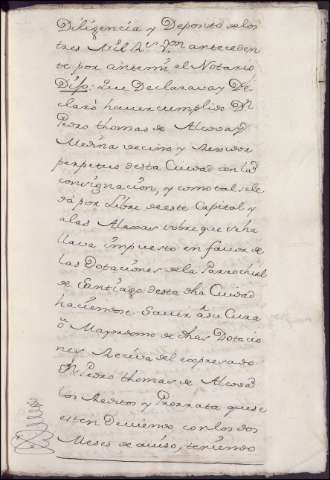 Diligencia y Deposito de los
tres Mil R.s v.on anteceden
te por antemi el Notario
Dijo: Que Declarava y De
claró haver cumplido Dn
Pedro thomas de
Medina vecino y Rexidor
perpetuo desta Ciudad con la
consignacion, y como tal se le
dá por Libre de este Capital y
a las sobre que se ha
llava impuesto en favor de
las Dotaciones de la Parrochial
de Santiago desta dha Ciudad
haciendose saver a su Cura
ó Mayordomo de dhas Dotacio
nes Reciva del expresado
Dn Pedro thomas de
los Reditos y Prorrata que se
esten Deviendo con los dos
Meses de aviso, teniendo